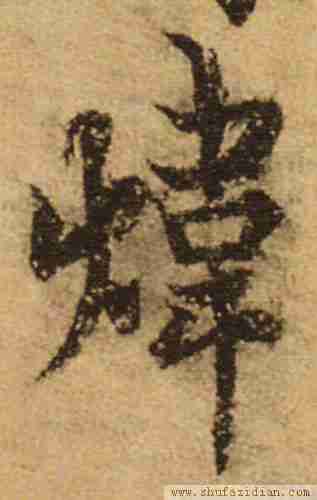 煒
www.shufazidian.com